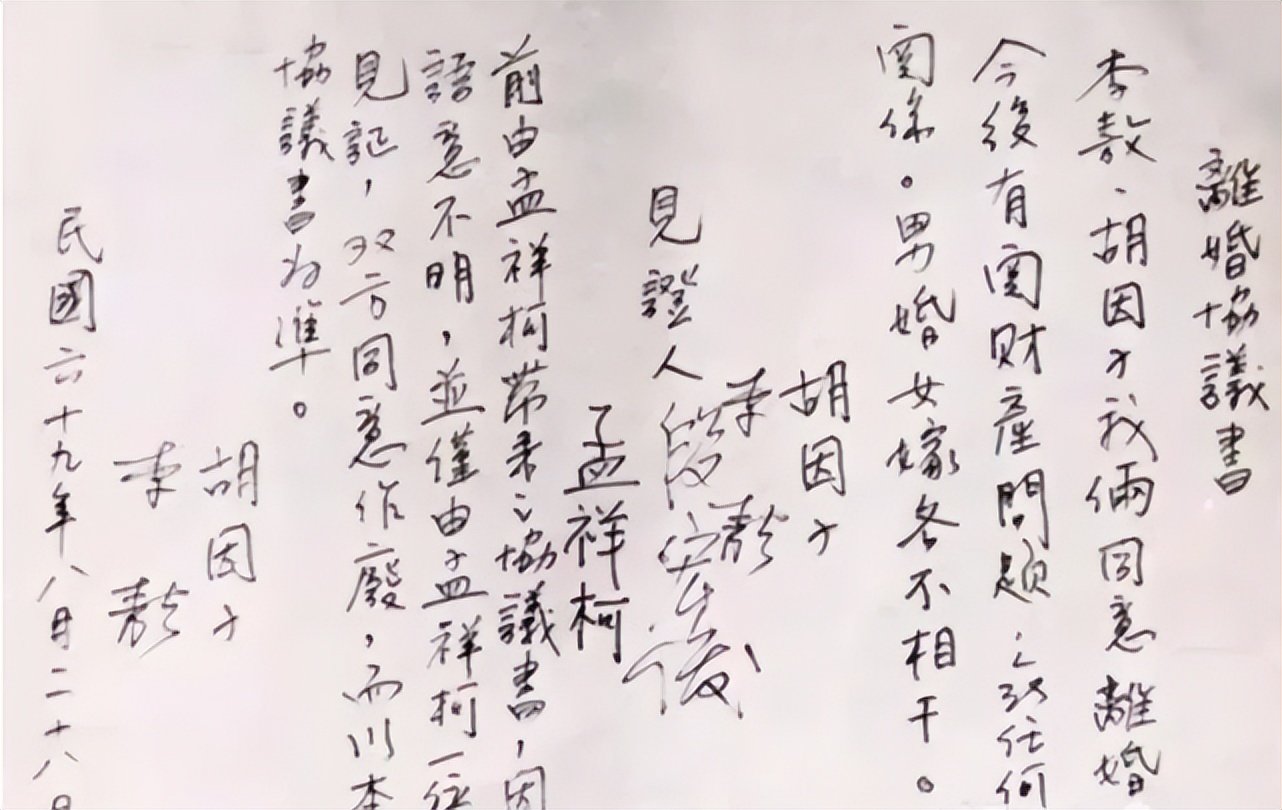 離婚協議書
李敖、胡因子我倆同意離婚
今後有関財産問題、互無任何
関係。男婚女嫁各不相干。
胡因子
李敖
見證人 段宏俊
孟祥柯
前由孟祥柯帶來之協議書，因
語意不明，並僅由孟祥柯一位
見証，双方同意作廢，而以本
協議書為準。
胡因子
李敖
民國六十九年八月二十八日